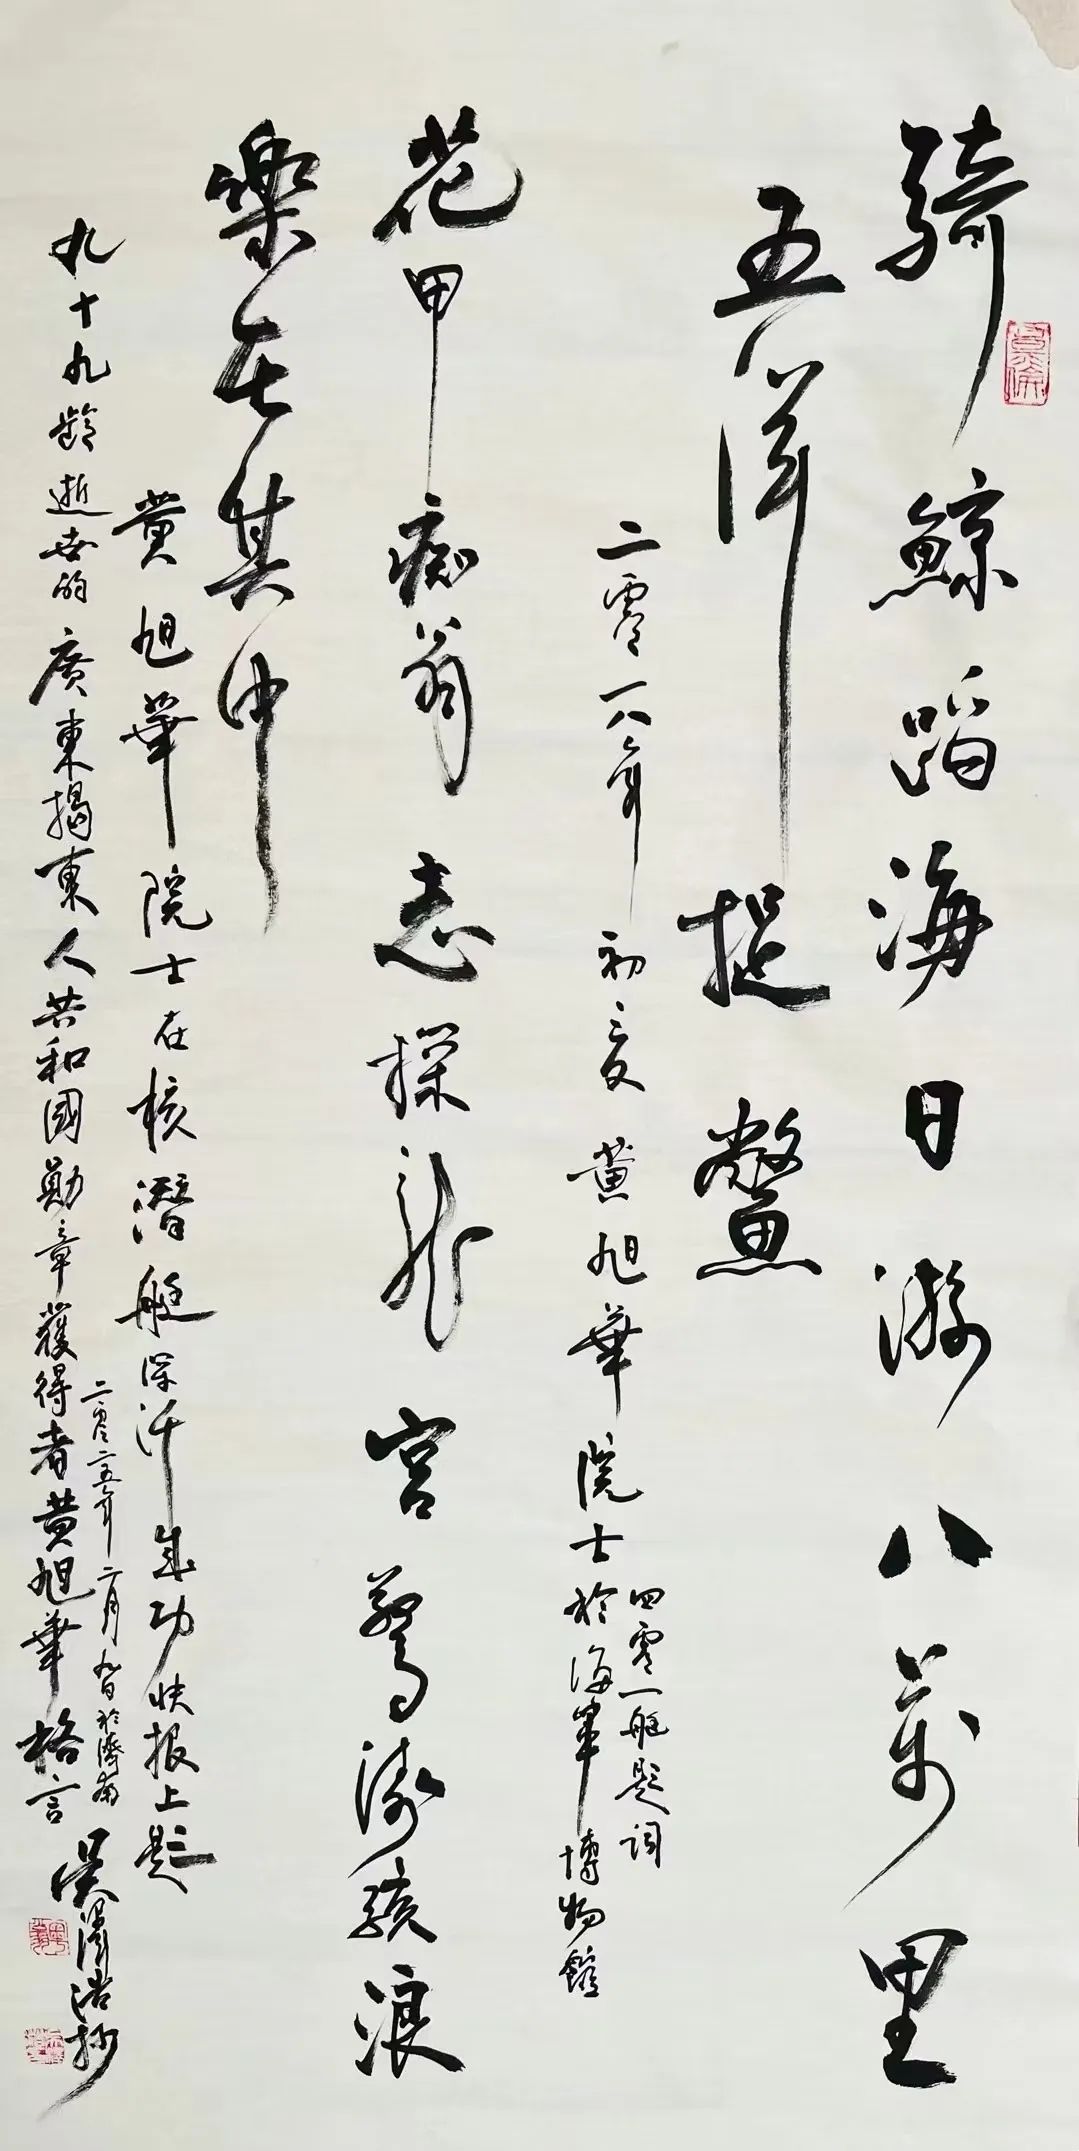 騎鯨蹈海日游八萬里
五洋捉鱉
二零一八年初夏黄旭華院士於海軍博物館
四零一艇題詞
花甲痴翁志探龍宮驚濤駭浪
樂在其中
黄旭華院士在核潛艇深汙成功快报上題
九十九齡逝世的廣東揭東人共和國勛章獲得者黄旭華格言
二零二五年二月九日於濟南
吴澤浩抄